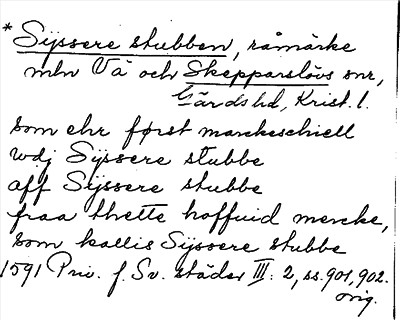 * Syssere stubben, råmärke
mln Vä och Skepparslövs snr,
Gärds hd, Krist. l.
som ehr først marckeschiell
wdj Syssere stubbe
aff Syssere stubbe
fraa thette hoffuid mercke,
som kallis Syssere stubbe
1591 Priv. f. Sv. städer III: 2, ss. 901, 902.
orig.